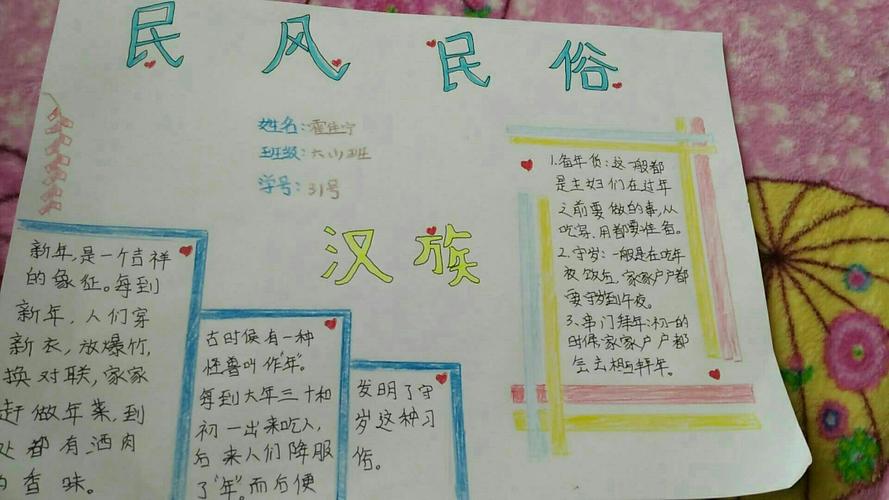 民风民俗
姓名:霍佳宁
班级:六(1)班
学号:31号
汉族
新年,是一个吉祥
的象征。每到
新年,人们穿
新衣,放爆竹,
换对联,家家
赶做年菜,到
处都有酒肉
的香味。
古时候有一种
怪兽叫作“年”。
每到大年三十和
初一出来吃人,
后来人们降服
了“年”。而后便
发明了守
岁这种习
俗。
1.备年货:这一般都
是主妇们在过年
之前要做的事,从
吃穿、用都要准备。
2.守岁:一般是在吃年
夜饭后,家家户户都
要守岁到午夜。
3、串门拜年:初一的
时候,家家户户都
会去相互拜年。